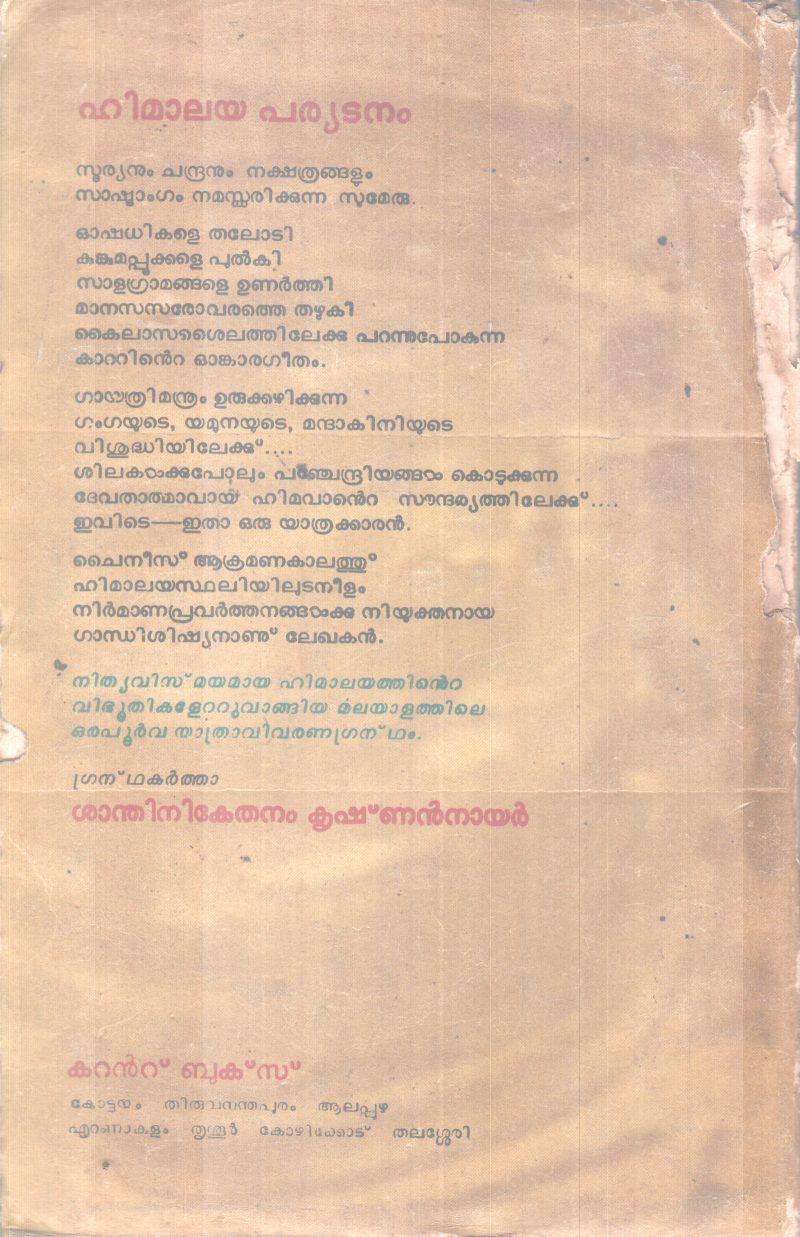 ഹിമാലയ പര്യടനം
സൂര്യനും ചന്ദ്രനും നക്ഷത്രങ്ങളും
സാഷ്ടാംഗം നമസ്കരിക്കുന്ന സുമേരു.
ഓഷധികളെ തലോടി
കുങ്കുമപ്പൂക്കളെ പുൽകി
സാളഗ്രാമങ്ങളെ ഉണർത്തി
മാനസസരോവരത്തെ തഴുകി
കൈലാസശൈലത്തിലേക്കു പറന്നുപോകുന്ന
കാററിൻെറ ഓങ്കാരഗീതം.
ഗായത്രിമന്ത്രം ഉരുക്കഴിക്കുന്ന
ഗംഗയുടെ, യമുനയുടെ, മന്ദാകിനിയുടെ
വിശുദ്ധിയിലേക്കു്....
ശിലകൾക്കുപോലും പഞ്ചേന്ദ്രിയങ്ങൾ കൊടുക്കുന്ന
ദേവതാത്മാവായ ഹിമവാൻെറ സൗന്ദര്യത്തിലേക്കു്....
ഇവിടെ—ഇതാ ഒരു യാത്രക്കാരൻ.
ചൈനീസ് ആക്രമണകാലത്തു്
ഹിമാലയസ്ഥലിയിലുടനീളം
നിർമാണപ്രവർത്തനങ്ങൾക്കു നിയുക്തനായ
ഗാന്ധിശിഷ്യനാണു് ലേഖകൻ.
നിത്യവിസ്മയമായ ഹിമാലയത്തിൻെറ
വിഭൂതികളേററുവാങ്ങിയ മലയാളത്തിലെ
ഒരപൂർവ യാത്രാവിവരണഗ്രന്ഥം.
ഗ്രന്ഥകർത്താ
ശാന്തിനികേതനം കൃഷ്ണൻനായർ
കറൻറ് ബുക്സ്
കോട്ടയം തിരുവനന്തപുരം ആലപ്പുഴ
എറണാകുളം തൃശൂർ കോഴിക്കോട് തലശ്ശേരി